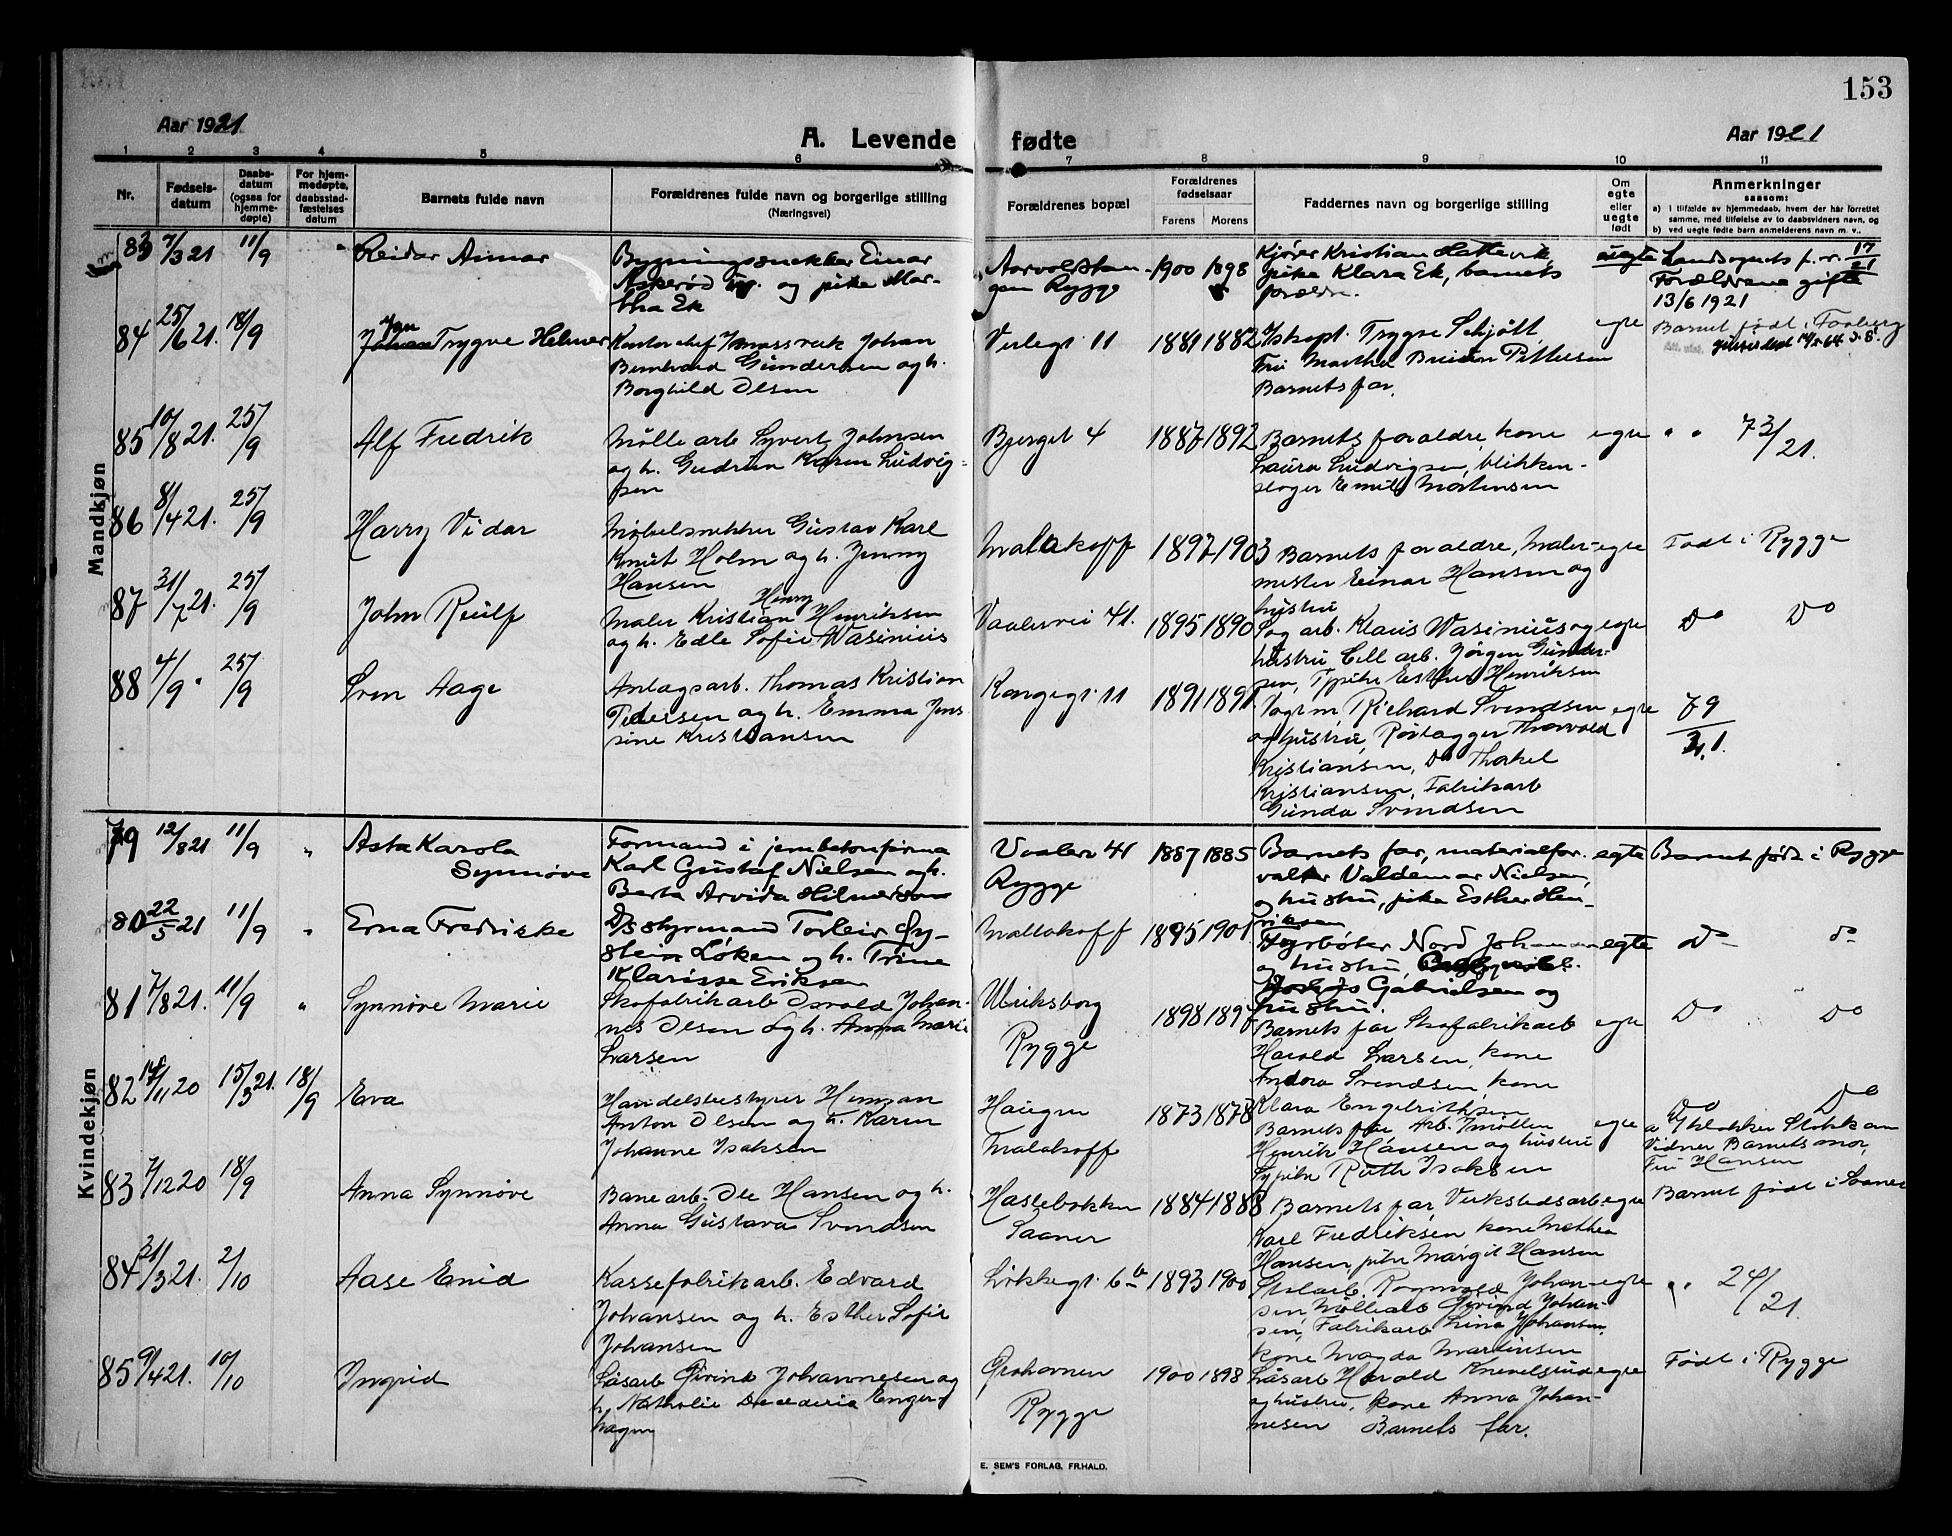 153
Aar 1921
A. Levende fødte
Aar 1921
1 2 3 4 5 6 7 8 9 10 11
Nr.
Fødsels-
datum
Daabs-
datum
(ogsaa for
hjemme-
døpte)
For hjem-
medøpte,
daabsstad-
fæstelses
datum
Barnets fulde navn
Forældrenes fulde navn og borgerlige stilling
(Næringsvei)
Forældrenes bopæl
Forældrenes
fødselsaar
Farens Morens
Faddernes navn og borgerlige stilling
Om
egte
eller
uegte
født
Anmerkninger
saasom:
a) i tilfælde av hjemmedaab, hvem der har forrettet
samme, med tilføielse av to daabsvidners navn, og
b) ved uegte fødte barn anmelderens navn m. v..
Mandkjøn
83 7/3 21 11/9 " Reidar Aimar
Bygningssnekker Einar
Askerød og pike Mar-
tha Ek
Rygge
1900 1898
Kjører Kristian Hattevik,
pike Klara Ek, barnets
forældre.
uegte
Landsognets p. r. 17/21
Forældrene gifte
13/6 1921
84 25/6 21. 18/9
Johan Trygve Helmer
Johan
Bernhard Gundersen og h.
Borghild Olsen
Verlegt. 11
1881 1882
Iskopt. Trygve Schjøtt,
Fru Martha Pettersen
Barnets far.
egte
Barnet født i
85 10/8 21. 25/9
Alf Fredrik
Mølle arb Syvert Johnsen
og h. Gudrun Karen Ludvig-
sen
Bjerget 4
1887 1892
Barnets foraldre, kone
Laura Ludvigsen, blikken-
slager Emil Mortensen
egte
" " 73/21.
86 8/4 21. 25/9
Harry Vidar
Møbelsnekker Gustav Karl
Knut Holm og h. Jenny
Hansen
Malakoff
1897 1903
Barnets foraldre, Maler-
mester Einar Hansen og
hustru
egte
Født i Rygge
87 31/7 21. 25/9
John Reulf
Henry
Maler Kristian Henriksen
og h. Edle Sofie Wasinius
Vaalervei 41.
1895 1890
Sag arb. Klaus Wasinius og
hustru Cell arb. Jørgen Gunder-
sen, Typike Esther Henriksen
egte
Do Do
88 4/9 " 25/9
Sven Aage
Anlagsarb. Thomas Kristian
Pedersen og h. Emma Jens
sine Kristiansen
Kongegt. 11
1891 1891
Vogtm Richard Svendsen
og hustru, Rørlægger Thorvald
Kristiansen, Do Thorkel
Kristiansen, Fabrikarb
Gunda Svendsen
egte
79
21.
Kvindekjøn
79 12/8 21 11/9 "
Asta Karola
Synnøve
Formand i jernbetonfirma
Karl Gustaf Nielsen og h.
Berta Arvida Hilmerson
Vaalerv 41
Rygge
1887 1885
Barnets far, materialfor-
valter Valdemar Nielsen,
og hustru, pike Esther Hen-
riksen
egte
Barnet født i Rygge
80 22/5 21 11/9 "
Erna Fredrikke
D/S styrmand Torleiv Øy-
stein Løken og h. Trine
Klarisse Eriksen
Mallakoff
1895 1901
Fyrbøter Nord Johannsen
og hustru,
Gabrielsen og
hustru.
egte
Do Do
81 7/8 21. 11/9 "
Synnøve Marie
Skofabrikarb Osvald Johan-
nes Olsen og h. Anna Marie
Larsen
Ulriksborg
Rygge
1898 1897
Barnets far Skofabrikarb
Harold Larsen, kone
Andora Svendsen, kone
Klara Engebrithsen
egte
Do Do
82 18/11 20 15/3 21. 18/9
Eva
Handelsbestyrer Herman
Anton Olsen og h. Karen
Johanne Isaksen
Haugen
Malakoff
1873 1878
Barnets far Arb. Møllen
Henrik Hansen og hustru
Sypike Ruth Isaksen
egte
Do Do
a Klokker Stokkan
Vidner Barnets mor,
Fru Hansen
83 7/12 20 18/9
Anna Synnøve
Bane arb. Ole Hansen og h.
Anna Gustava Svendsen
Haslebakken
Saaner
1884 1888
Barnets far, Verkstedsarb.
Karl Fredriksen kone Mathea
Hansen pike Margit Hansen
egte
Barnet født i Saaner
84 31/3 21. 2/10
Aase Enid
Kassefabrikarb. Edvard
Johansen og h. Esther Sofie
Johansen
Løkkegt. 6b
1893 1900
Skolarb. Ragnvald Johan-
sen, Møllearb Øivind Johan-
sen, Fabrikarb Lina Johansen,
kone Magda Martinsen
egte
" 24/21.
85 9/4 21. 10/10
Ingrid
Løsarb Øivind Johannesen og
h. Nathalie Enger-
hagen
Ørehavnen
Rygge
1900 1898
Løsarb Harald Knevelsrud
og hustru, kone Anna Johan-
nesen Barnets far.
egte
Født i Rygge
E. SEM'S FORLAG, FR.HALD.